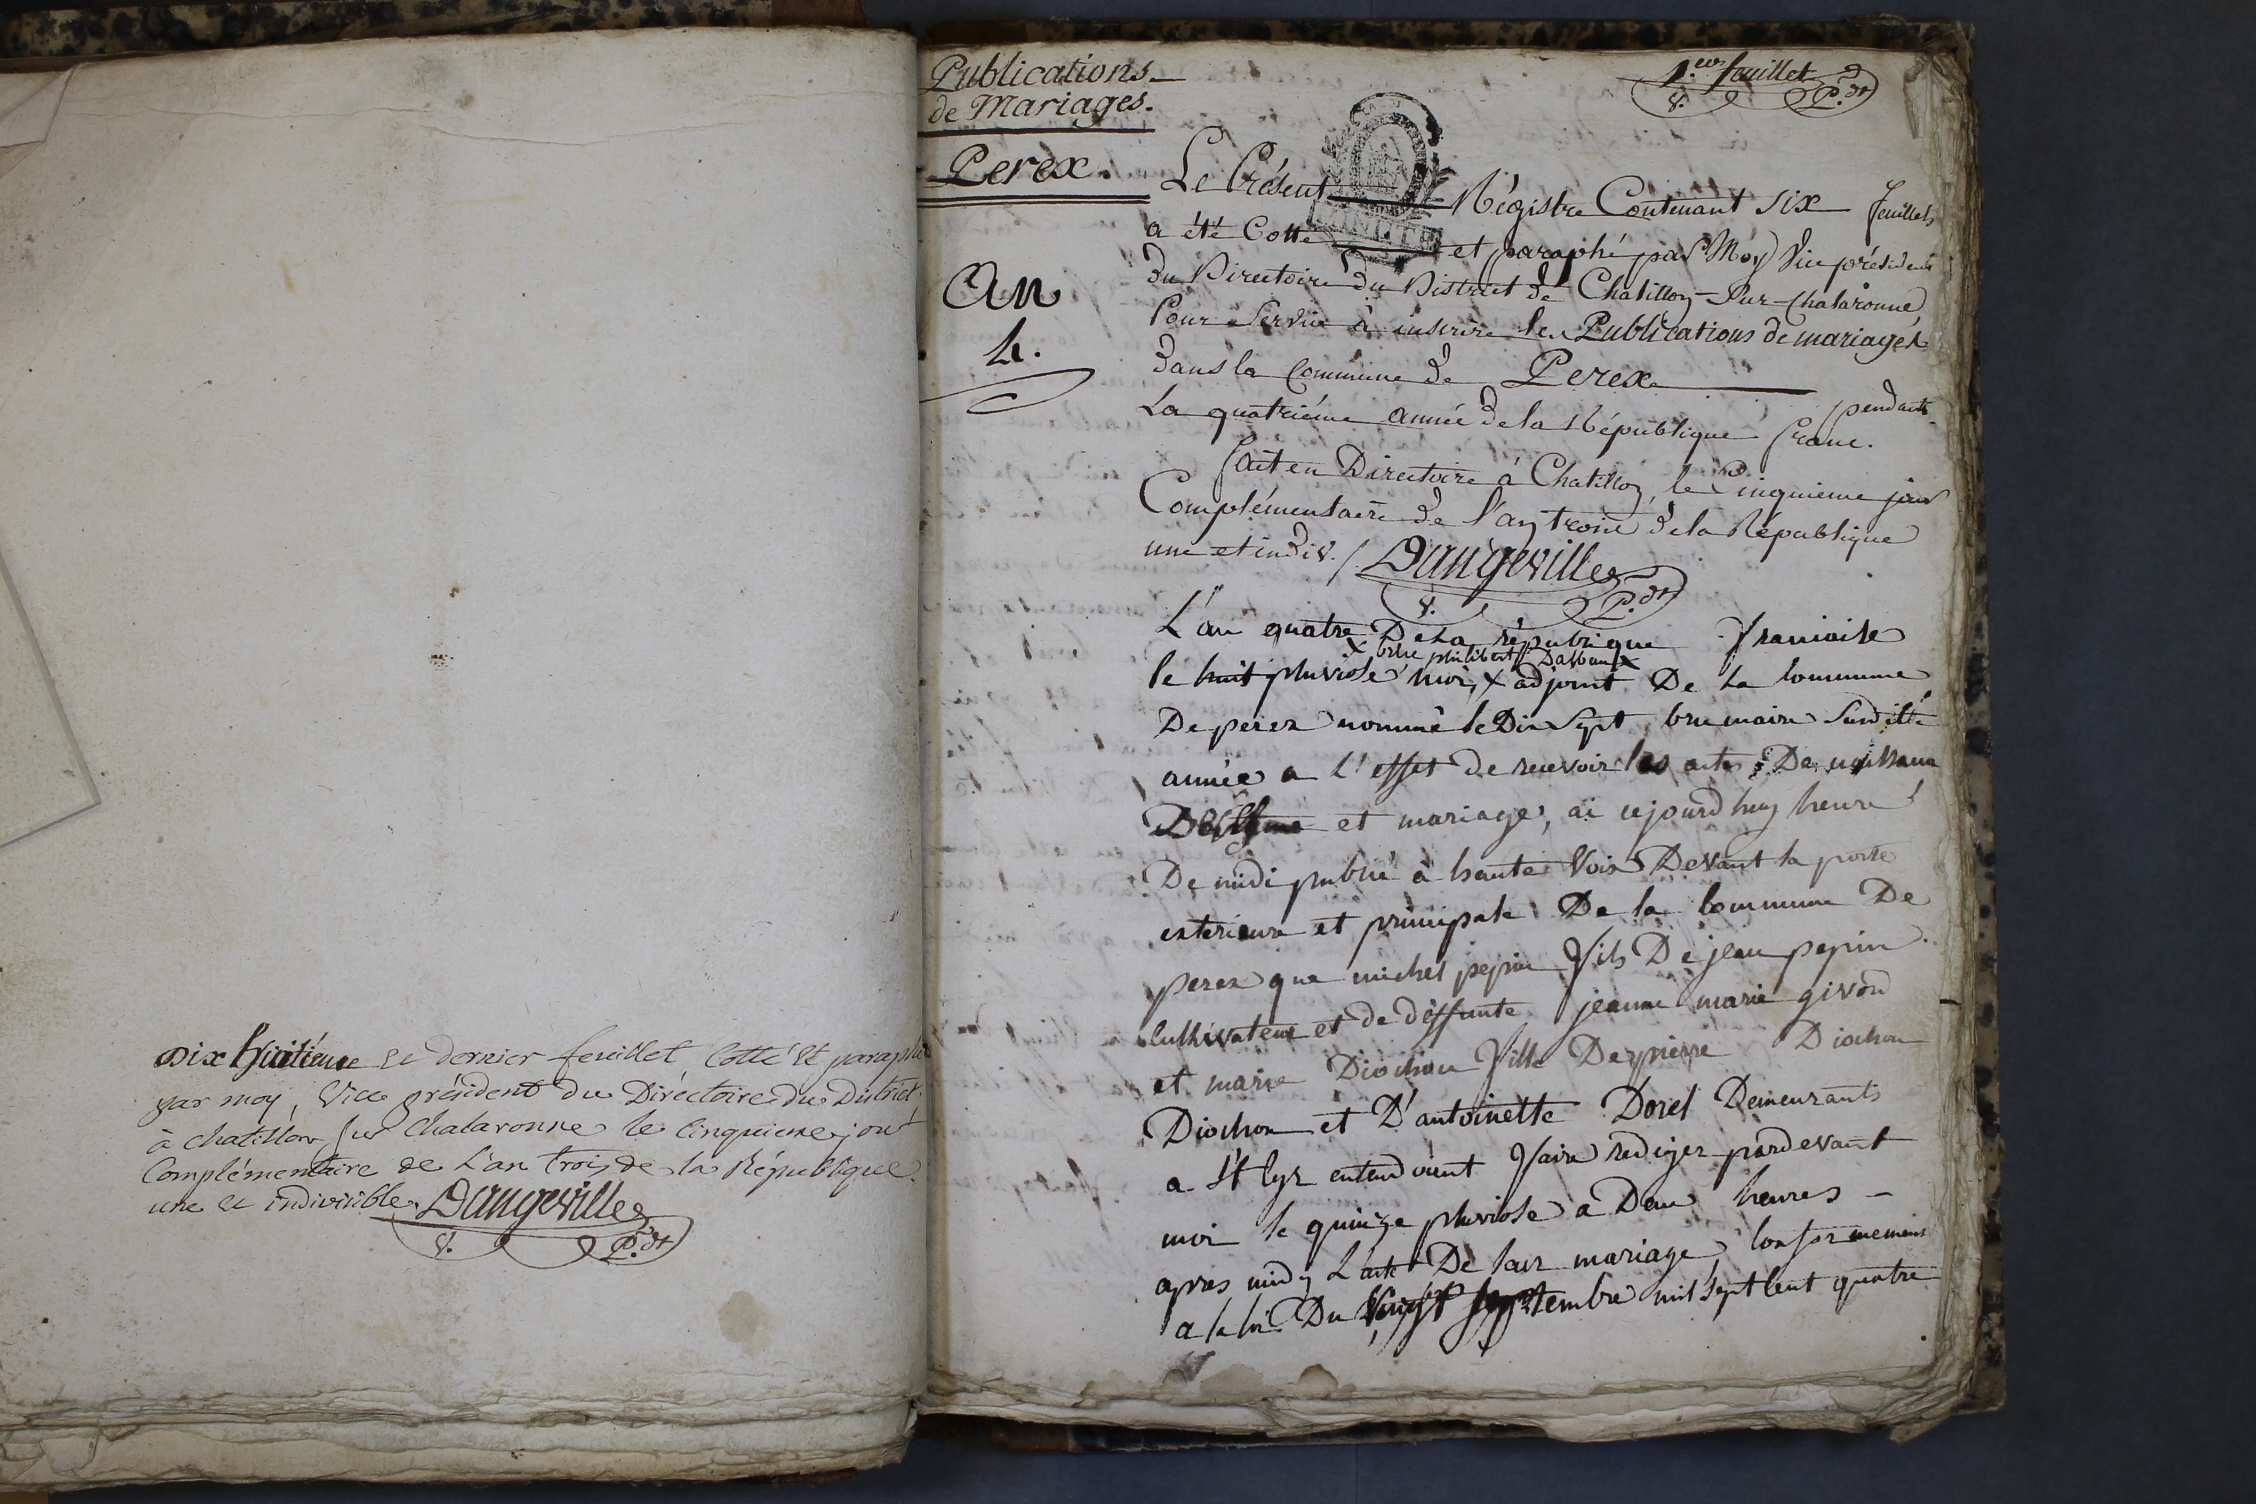 Dix huitième et dernier feuillet Cotté et paraphé
par moy, Vice président du Diréctoire du District
à Chatillon sur Chalaronne le Cinquieme jour
Complémentaire de L'an trois de la République
une et indivisible. Dangeville
V. P.dt
Publications
de Mariages.
Perex.
An
4.
1.er feuillet
V. P.dt
Le Présent Régistre Contenant six feuillets
a été Cotté et paraphé par Moy Vice président
du Directoire du District de Chatillon-Sur-Chalaronne,
Pour Servir à inscrire les Publications de mariages
dans la Commune de Perex pendant
La quatriéme année de la République franc.
fait en Directoire à Chatillon, le Cinquieme jour
Complémentaire de l'an trois de la République
une et indiv. / Dangeville
V. P.dt
L'an quatre De La république francaise
x philibert Dasbau x
le huit pluviose moi, x adjoint De La Commune
De perex nommé le Dix Sept brumaire Surditte
année a L'effet de recevoir les actes De naissance
et mariage, ai cejourd huy heure
De midi publié à haute Voix Devant la porte
exterieure et principale De la Commune De
perex que michel pepin fils De jean pepin
Cultivateur et de deffunte jeanne marie givord
et marie Diochon fille De pierre Diochon
Diochon et D'antoinette Dorel Demeurants
a St Cyr entendoient faire rediger pardevant
moi le quinze pluviose a Deux heures -
apres midy L'acte De leur mariage, Conformement
a la loi Du Vingt septembre mil sept Cent quatre